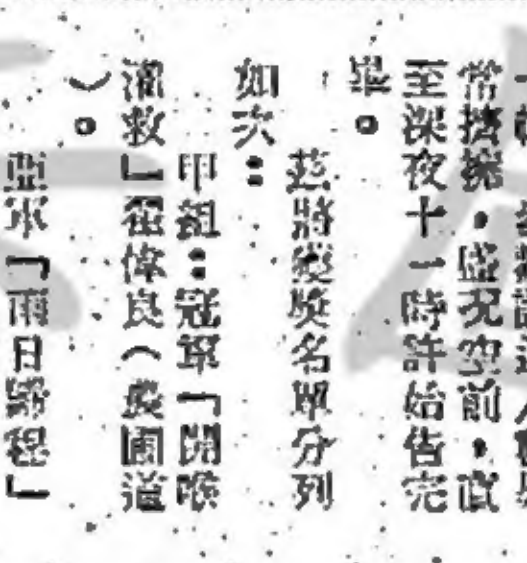 常擠擁，盛况空前，直
至深夜十一時許始告完
畢。
茲將獲獎名單分列
如次：
甲組：冠軍「開喉
灌救」翟偉良（農圃道
）。
亞軍「雨日歸程」